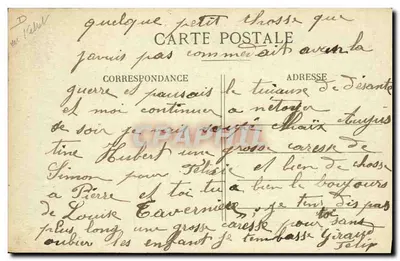 quelque petit chosse que
D
javais pas commedait avan la
CARTE POSTALE
CORRESPONDANCE
ADRESSE
guerre et pansais le de
et moi continuer a netoyer
se soir je chaix
tine Hubert une grosse caresse de
Simon pour Félicie et bien de chosse
a Pierre et toi tu a bien le boujours
de Louise Taverniere, je ten dis pas
plus long une grosse caresse pour toi sans
oublier les enfant je tembasse Giraud
Felix